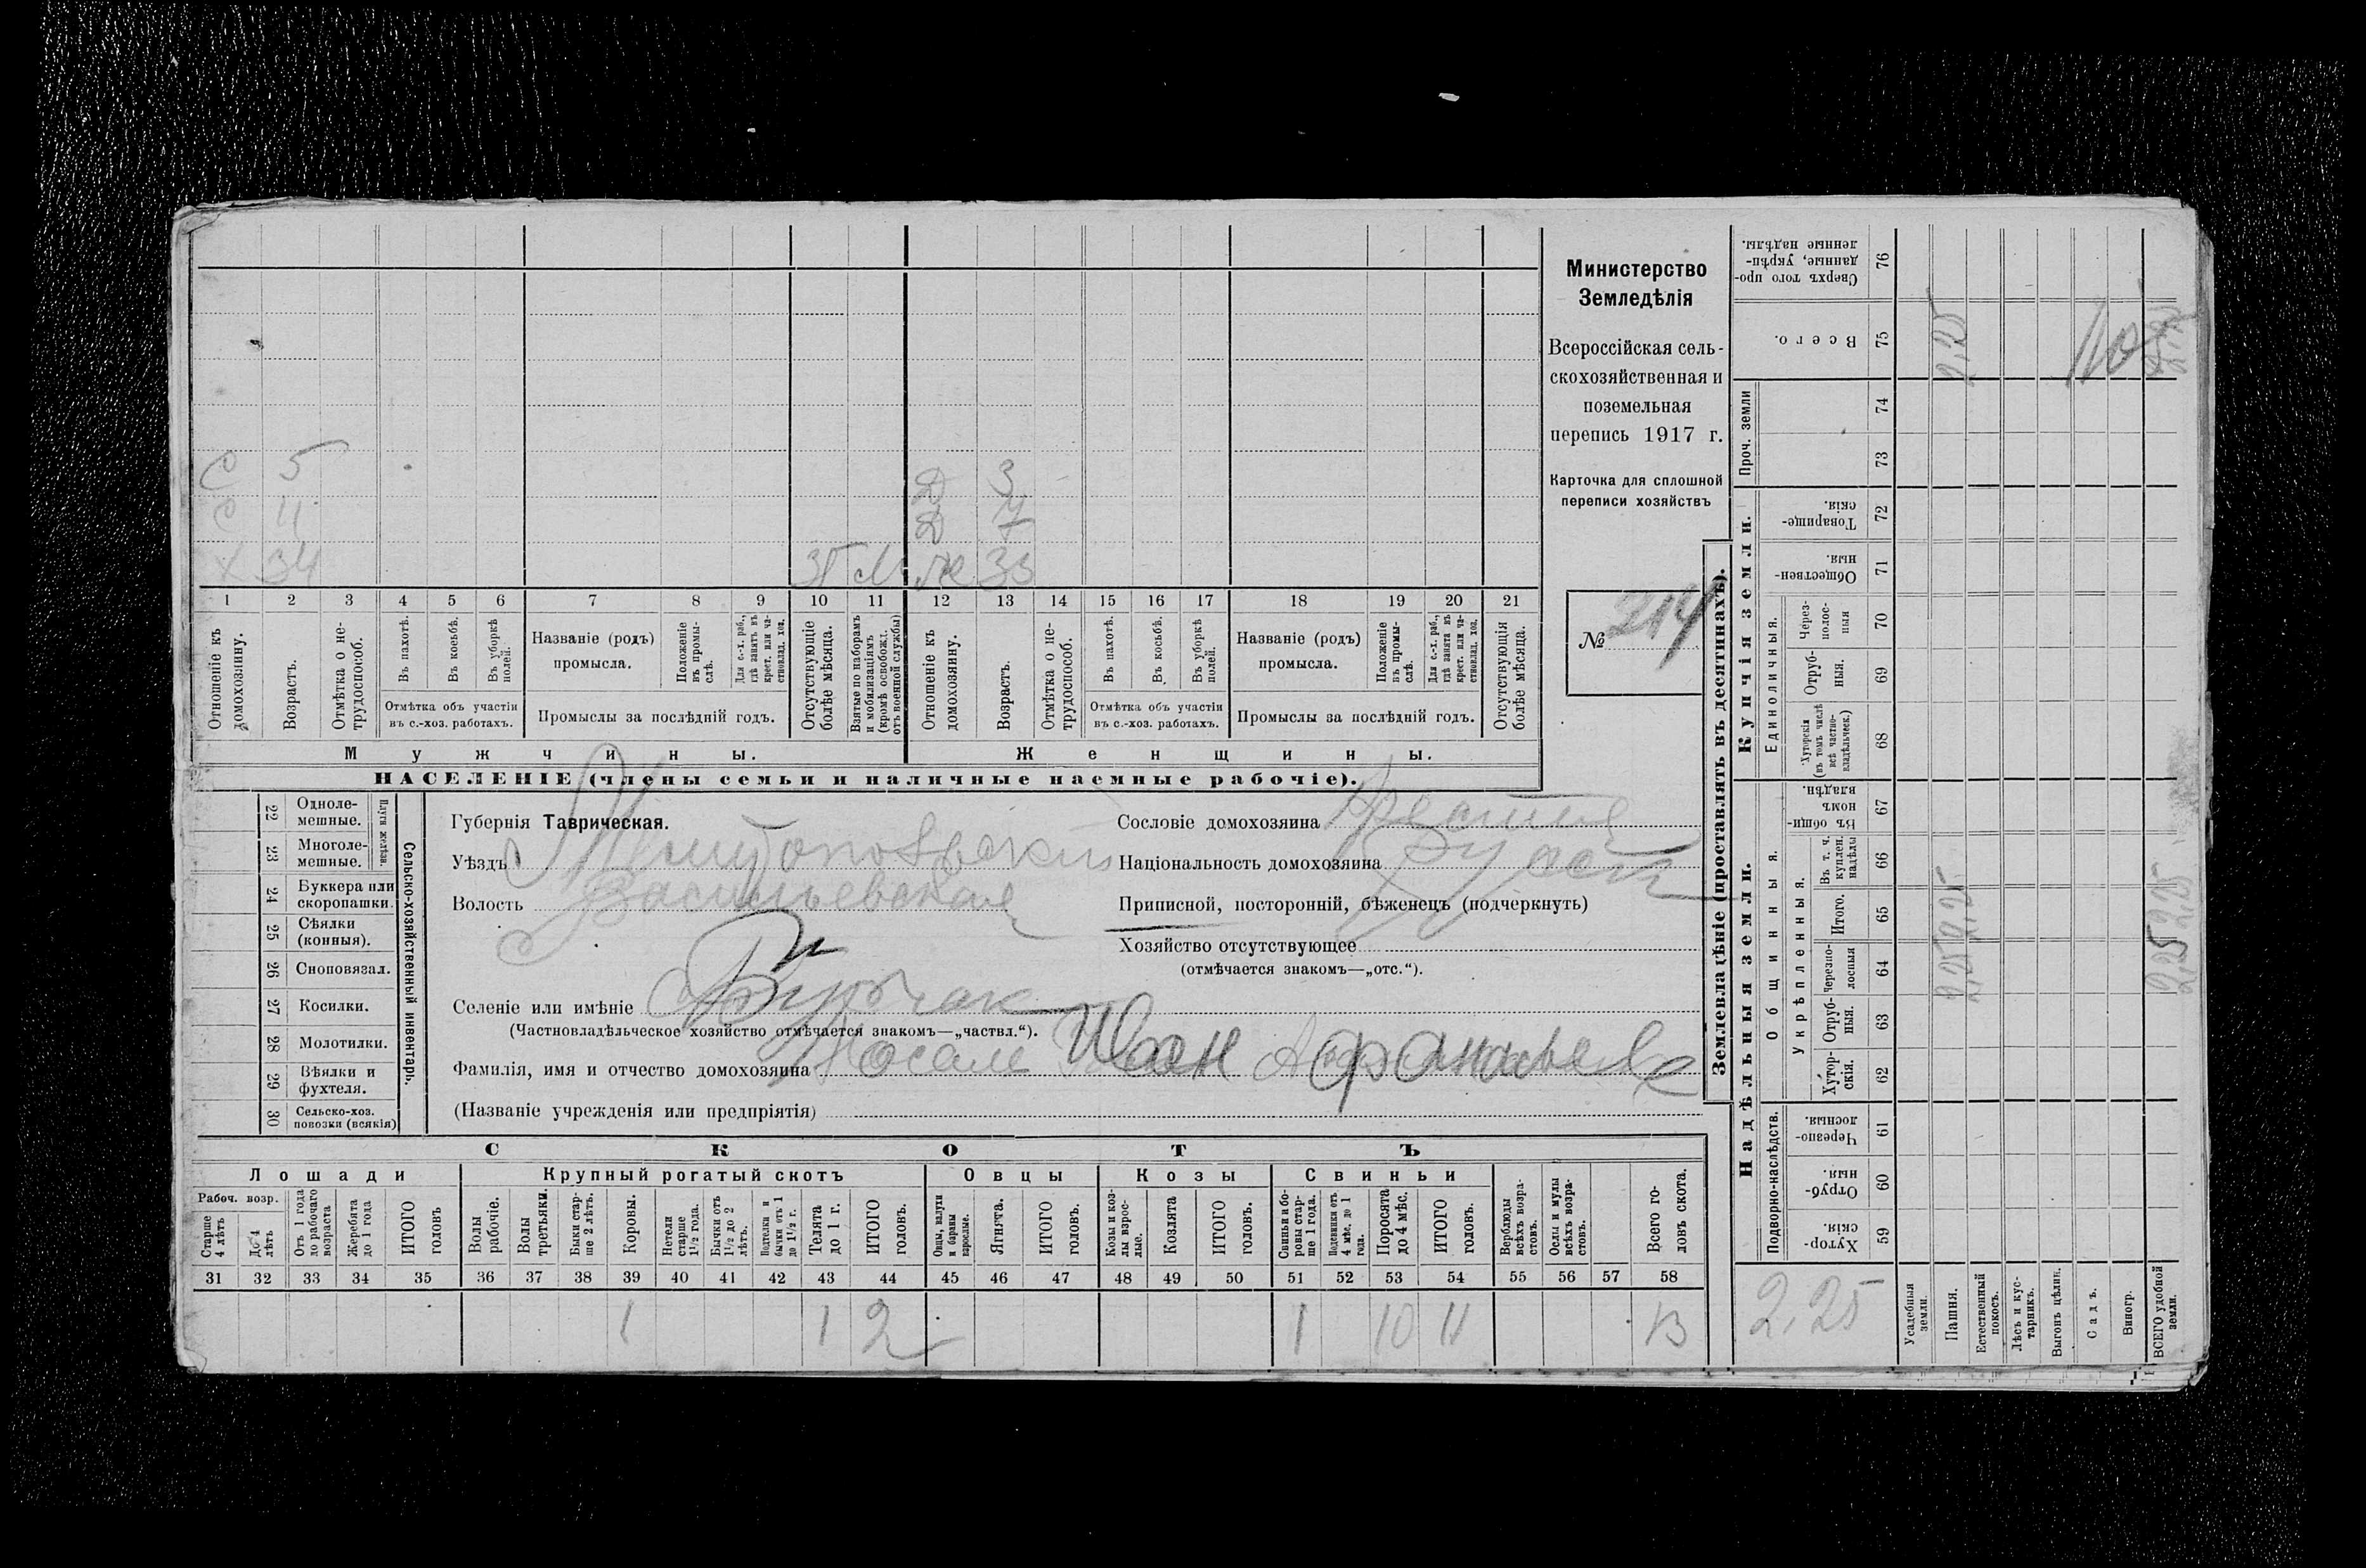 Министерство
Земледѣлія
Всероссійская сель-
скохозяйственная и
поземельная
перепись 1917 г.
Карточка для сплошной
переписи хозяйствъ
№ 214
С 5
Д 3
С 4
Д 7
Х 34 Ж 33
1 2 3 4 5 6 7 8 9 10 11 12 13 14 15 16 17 18 19 20 21
Отношеніе къ домохозяину.
Возрастъ.
Отмѣтка о не-трудоспособ.
Въ пахотѣ.
Въ косьбѣ.
Въ уборкѣ полей.
Отмѣтка объ участіи
въ с.-хоз. работахъ.
Названіе (родъ)
промысла.
Положеніе въ промы-слѣ.
Для с.-х. раб., гдѣ занятъ въ крест. или ча-стновлад. хоз.
Промыслы за послѣдній годъ.
Отсутствующіе болѣе мѣсяца.
Взятые по наборамъ и мобилизаціямъ (кромѣ освобожд. отъ военной службы)
Отношеніе къ домохозяину.
Возрастъ.
Отмѣтка о не-трудоспособ.
Въ пахотѣ.
Въ косьбѣ.
Въ уборкѣ полей.
Отмѣтка объ участіи
въ с.-хоз. работахъ.
Названіе (родъ)
промысла.
Положеніе въ промы-слѣ.
Для с.-х. раб., гдѣ занята въ крест. или ча-стновлад. хоз.
Промыслы за послѣдній годъ.
Отсутствующія болѣе мѣсяца.
Мужчины.
Женщины.
НАСЕЛЕНІЕ (члены семьи и наличные наемные рабочіе).
22 Одноле-мешные.
23 Многоле-мешные.
Плуги желѣзн.
24 Буккера или скоропашки.
25 Сѣялки (конныя).
26 Сноповязал.
27 Косилки.
28 Молотилки.
29 Вѣялки и фухтеля.
30 Сельско-хоз. повозки (всякія)
Сельско-хозяйственный инвентарь.
Губернія Таврическая.
Уѣздъ Мелитопольскій
Волость Васильевская
Селеніе или имѣніе Бурчак
(Частновладѣльческое хозяйство отмѣчается знакомъ—„частвл.“).
Фамилія, имя и отчество домохозяина Афанасьев
(Названіе учрежденія или предпріятія)
Сословіе домохозяина Крестья
Національность домохозяина Русск
Приписной, посторонній, бѣженецъ (подчеркнуть)
Хозяйство отсутствующее
(отмѣчается знакомъ—„отс.“).
СКОТЪ
Лошади Крупный рогатый скотъ Овцы Козы Свиньи
Рабоч. возр.
Старше 4 лѣтъ
До 4 лѣтъ
Отъ 1 года до рабочаго возраста
Жеребята до 1 года
ИТОГО головъ
Волы рабочіе.
Волы третьяки.
Быки стар-ше 2 лѣтъ.
Коровы.
Нетели старше 1½ года.
Бычки отъ 1½ до 2 лѣтъ.
Подтелки и бычки отъ 1 до 1½ г.
Телята до 1 г.
ИТОГО головъ.
Овцы, валухи и бараны взрослые.
Ягнята.
ИТОГО головъ.
Козы и коз-лы взрос-лые.
Козлята
ИТОГО головъ.
Свиньи и бо-ровы стар-ше 1 года.
Подсвинки отъ 4 мѣс. до 1 года.
Поросята до 4 мѣс.
ИТОГО головъ.
Верблюды всѣхъ возра-стовъ.
Ослы и мулы всѣхъ возра-стовъ.
Всего го-ловъ скота.
31 32 33 34 35 36 37 38 39 40 41 42 43 44 45 46 47 48 49 50 51 52 53 54 55 56 57 58
1 1 2 1 10 11 13
Землевладѣніе (проставлять въ десятинахъ).
Надѣльныя земли.
Купчія земли.
Проч. земли
Подворно-наслѣдств.
Общинныя.
Укрѣпленныя.
Единоличныя.
Сверхъ того про-данные, укрѣп-ленные надѣлы. 76
Всего. 75
74
73
Товарище-скія. 72
Обществен-ныя. 71
Через-полос-ныя 70
Отруб-ныя. 69
Хуторскія (въ томъ числѣ всѣ частно-владѣльческ.) 68
Въ общин-номъ владѣн. 67
Въ т. ч. куплен. надѣлы 66
Итого. 65
Черезпо-лосныя 64
Отруб-ныя. 63
Хутор-скія. 62
Черезпо-лосныя. 61
Отруб-ныя. 60
Хутор-скія. 59
2,25
Усадебныя земли.
Пашня.
2,25 2,25 2,25
Естественный покосъ.
Лѣсъ и кус-тарникъ.
Выгонъ цѣлин.
Садъ.
Виногр.
ВСЕГО удобной земли.
2,25 2,25